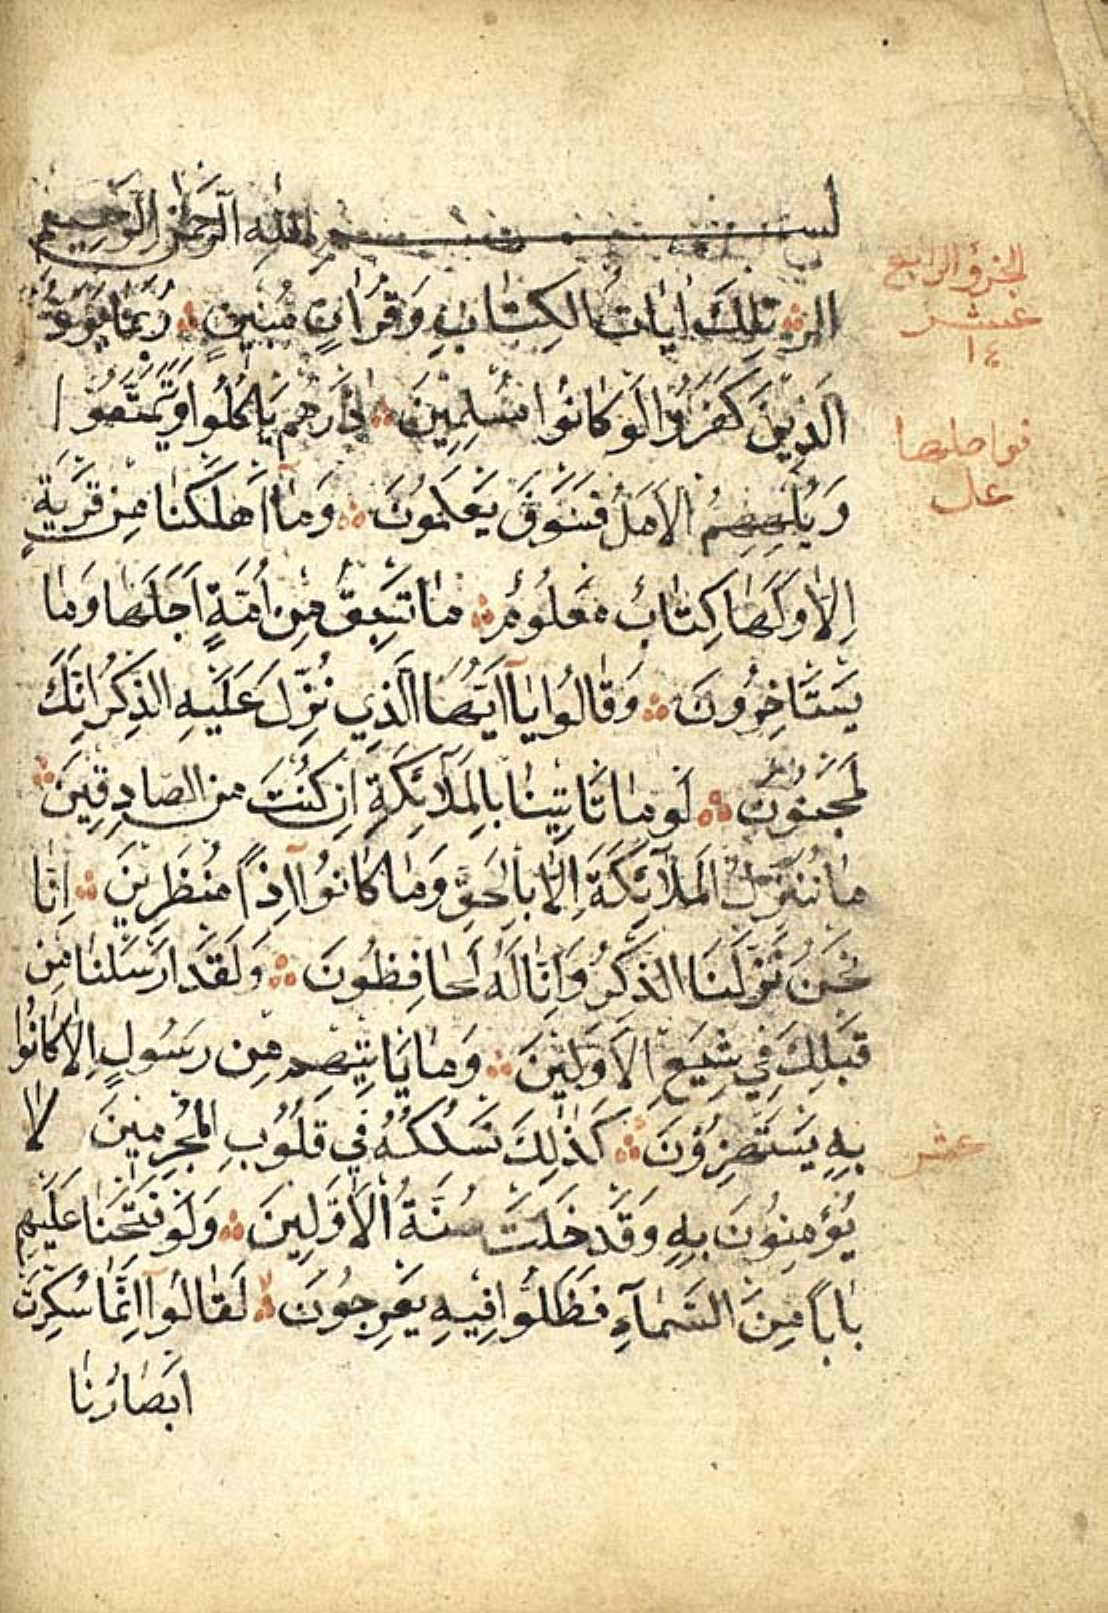 بسم الله الرحمن الرحيم
الر تِلْكَ اٰيَاتُ الكِتَابِ وَقُرْاٰنٍ مُبِينٍ رُبَمَا يَوَدُّ
الَّذِينَ كَفَرُوا لَوْ كَانُوا مُسْلِمِينَ ذَرْهُم يَاكُلُوا وَيَتَمَتَّعُوا
وَيُلْهِهِمُ الاَمَلُ فَسَوْفَ يَعْلَمُونَ وَمَآ اَهْلَكْنَا مِن قَرْيَةٍ
اِلَّا وَلَهَا كِتَابٌ مَعْلُومٌ مَا تَسْبِقُ مِن اُمَّةٍ اَجَلَهَا وَمَا
يَسْتَاخِرُونَ وَقَالُوا يَآ اَيُّهَا الَّذِي نُزِّلَ عَلَيْهِ الذِّكْرُ اِنَّكَ
لَمَجْنُونٌ لَوْمَا تَاتِينَا بِالمَلَآئِكَةِ اِن كُنْتَ مِنَ الصَّادِقِينَ
مَا نُنَزِّلُ المَلَآئِكَةَ اِلَّا بِالحَقِّ وَمَا كَانُوآ اِذًا مُنْظَرِينَ اِنَّا
نَحْنُ نَزَّلْنَا الذِّكْرَ وَاِنَّا لَهُ لَحَافِظُونَ وَلَقَدْ اَرْسَلْنَا مِن
قَبْلِكَ فِي شِيَعِ الاَوَّلِينَ وَمَا يَاتِيهِم مِن رَسُولٍ اِلَّا كَانُوا
بِهِ يَسْتَهْزِؤُنَ كَذٰلِكَ نَسْلُكُهُ فِي قُلُوبِ المُجْرِمِينَ لَا
يُؤْمِنُونَ بِهِ وَقَدْ خَلَتْ سُنَّةُ الاَوَّلِينَ وَلَوْ فَتَحْنَا عَلَيْهِم
بَابًا مِنَ السَّمَآءِ فَظَلُّوا فِيهِ يَعْرِجُونَ لَقَالُوآ اِنَّمَا سُكِّرَتْ
اَبْصَارُنَا
الجزؤ الرابع
عشر
١٤
فواصلها
عشر